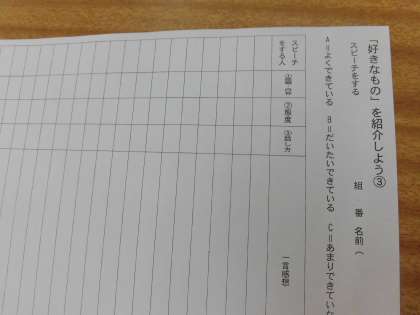 「好きなもの」を紹介しよう③
スピーチをする
組 番 名前(
A=よくできている B=だいたいできている C=あまりできていな
スピーチをする人
①題名
②態度
③話し方
一言感想